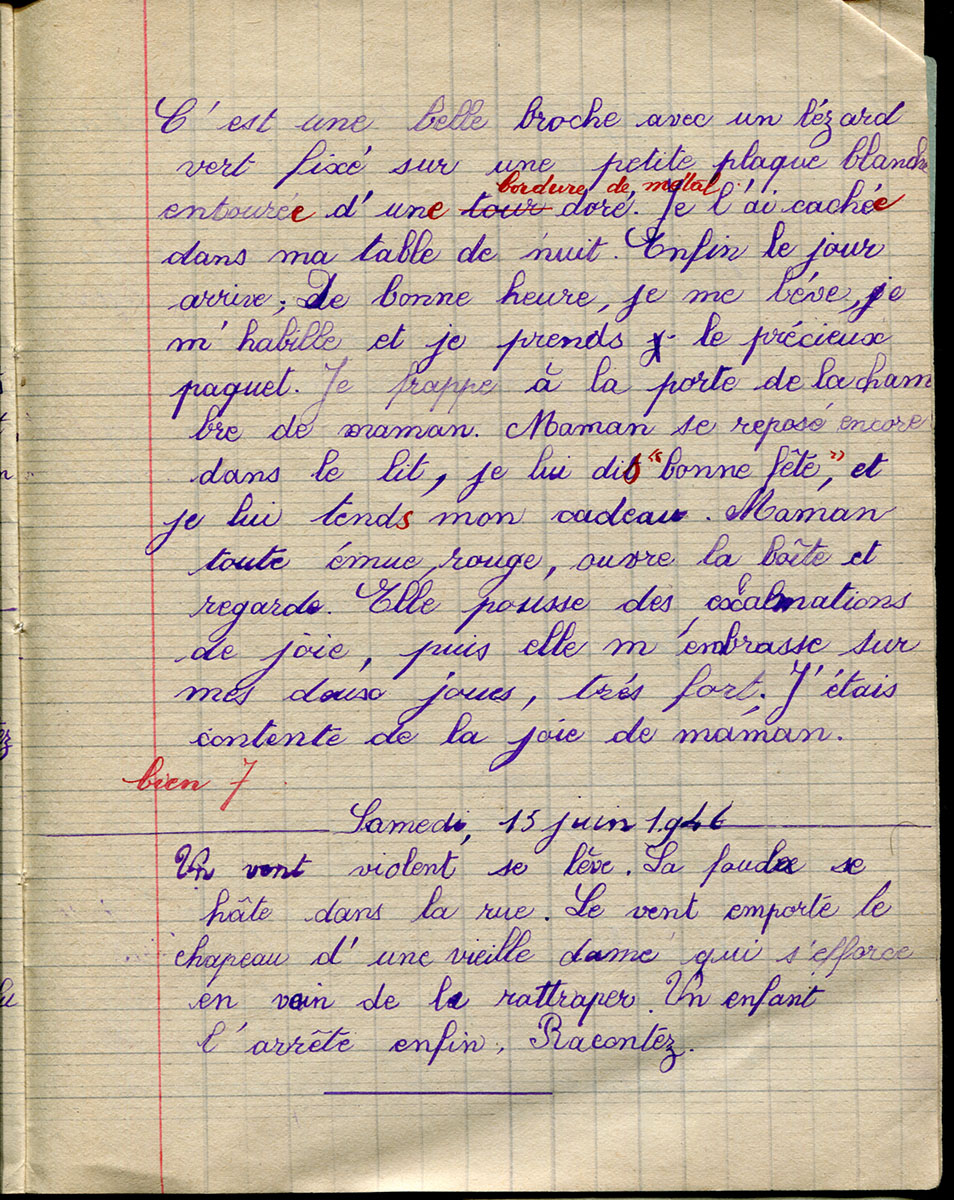 C'est une belle broche avec un lézard
vert fixé sur une petite plaque blanche
bordure de métal
entourée d'une tour doré. Je l'ai cachée
dans ma table de nuit. Enfin le jour
arrive; De bonne heure, je me lève, je
m'habille et je prends le précieux
paquet. Je frappe à la porte de la cham
bre de maman. Maman se repose encore
dans le lit, je lui dis "bonne fête", et
je lui tends mon cadeau. Maman
toute émue, rouge, ouvre la boîte et
regarde. Elle pousse des
de joie, puis elle m'enbrasse sur
mes deux joues, très fort. J'étais
contente de la joie de maman.
bien 7
Samedi, 15 juin 1946
Un vent violent se lève. La foule se
hâte dans la rue. Le vent emporte le
chapeau d'une vieille dame qui s'efforce
en vain de le rattraper. Un enfant
l'arrête enfin. Racontez.